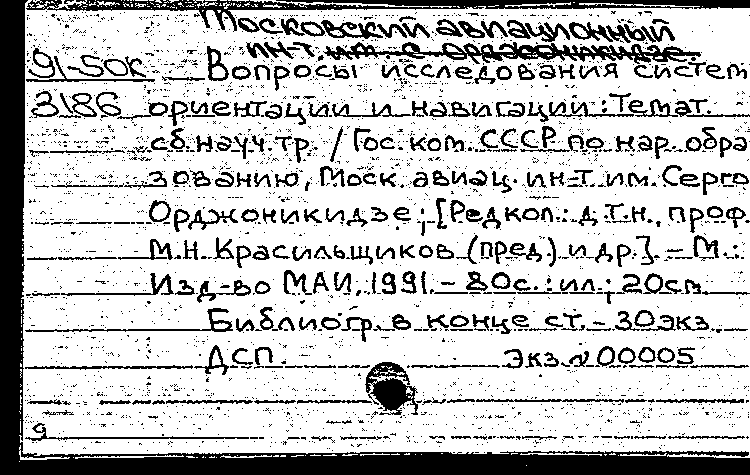 Московский авиационный
ин-т им. С. Орджоникидзе.
91-50к Вопросы исследования систем
3186 ориентации и навигации: Темат.
сб. науч. тр. / Гос. ком. СССР по нар. обра
зованию, Моск. авиац. ин-т им. Серго
Орджоникидзе; [Редкол.: д.т.н., проф.
М.Н. Красильщиков (пред.) и др.]. - М.:
Изд-во МАИ, 1991. - 80с.: ил.; 20см.
Библиогр. в конце ст. - 30 экз.
ДСП. Экз. № 00005
9